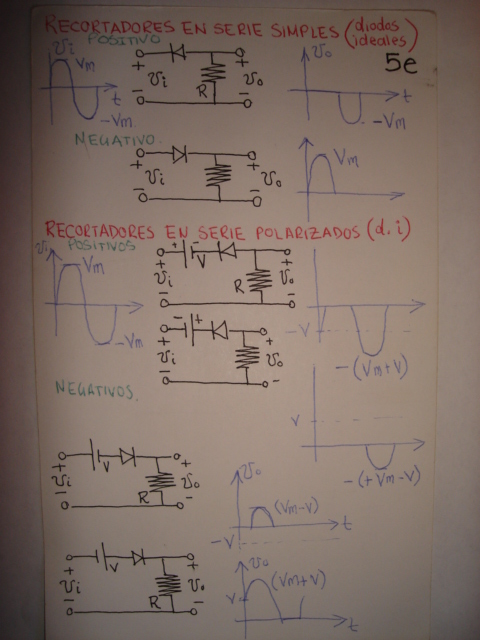 RECORTADORES EN SERIE SIMPLES (diodos ideales)
POSITIVO
5e
vi
Vm
t
-Vm
+ +
vi R vo
- -
vo
t
-Vm
NEGATIVO
+ +
vi vo
- -
Vm
RECORTADORES EN SERIE POLARIZADOS (d.i)
POSITIVOS
vi
Vm
-Vm
+ -
V
+ +
vi R vo
- -
-V
-(Vm+V)
- +
+ +
vi vo
- -
NEGATIVOS.
V
-(+Vm-V)
+ V +
vi R vo
- -
vo
(Vm-V)
t
-V
+ V +
vi R vo
- -
vo
(Vm+V)
V
t